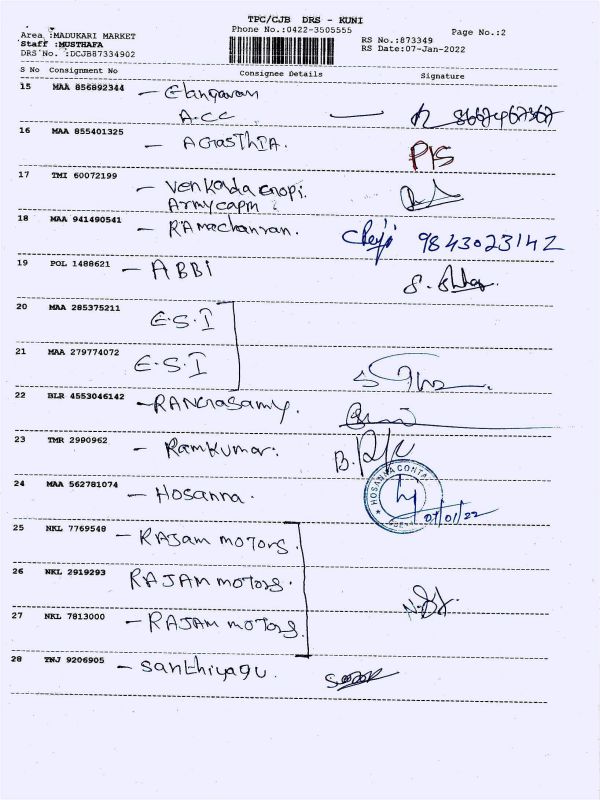 TPC/CJB DRS - KUNI
Area :MADUKARI MARKET Phone No.:0422-3505555 Page No.:2
Staff :MUSTHAFA RS No.:873349
DRS No. :DCJB87334902 RS Date:07-Jan-2022
S No Consignment No Consignee Details Signature
15 MAA 856892344 - Elangavan
A.CC
16 MAA 855401325 - AGASTHIA. PIS
17 TMI 60072199 - Venkada Gnopi.
Armycapm
18 MAA 941490541 - RAmachanran. 9843023142
19 POL 1488621 - ABBI
20 MAA 285375211 E.S.I
21 MAA 279774072 E.S.I
22 BLR 4553046142 - RANGrasamy.
23 TMR 2990962 - Ramkumar.
24 MAA 562781074 - Hosanna. HOSANNA CONTA
07/01/22
25 NKL 7769548 - RAJam motors.
26 NKL 2919293 RAJAM motors.
27 NKL 7813000 - RAJAM motors.
28 TNJ 9206905 - Santhiyagu.